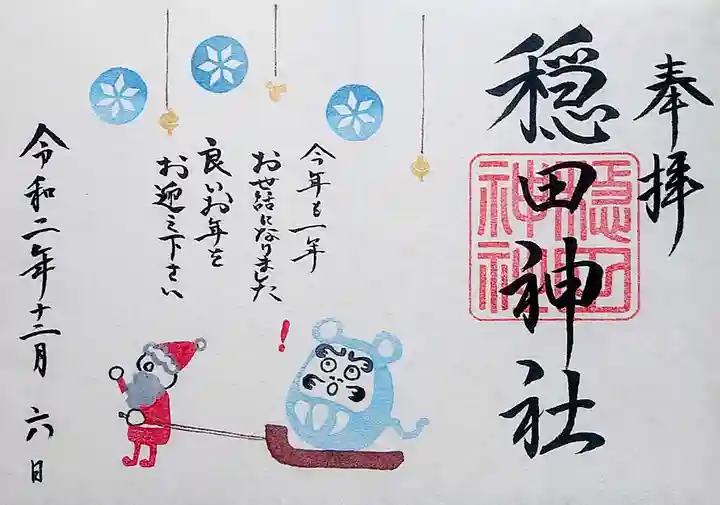 奉拝
穏田神社
穏田
神社
今年も一年
お世話になりました
良いお年を
お迎え下さい
令和二年十二月六日
!